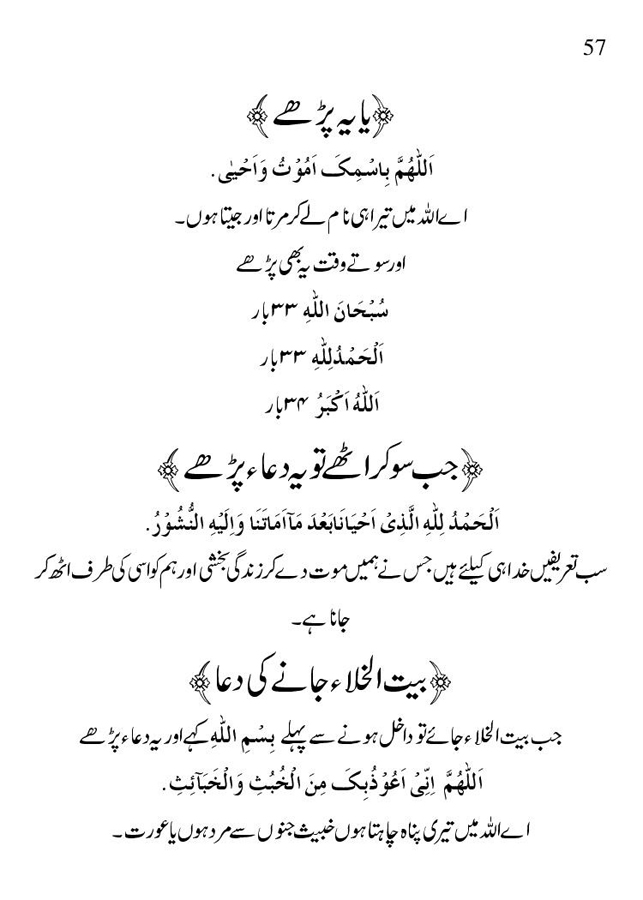 57
﴿یا یہ پڑھے﴾
اَللّٰهُمَّ بِاسْمِکَ اَمُوْتُ وَاَحْیٰی.
اے اللہ میں تیرا ہی نام لے کر مرتا اور جیتا ہوں۔
اور سوتے وقت یہ بھی پڑھے
سُبْحَانَ اللّٰهِ ۳۳ بار
اَلْحَمْدُلِلّٰهِ ۳۳ بار
اَللّٰهُ اَکْبَرُ ۳۴ بار
﴿جب سو کر اٹھے تو یہ دعاء پڑھے﴾
اَلْحَمْدُ لِلّٰهِ الَّذِیْ اَحْیَانَابَعْدَ مَآاَمَاتَنَا وَاِلَیْهِ النُّشُوْرُ.
سب تعریفیں خدا ہی کیلئے ہیں جس نے ہمیں موت دے کر زندگی بخشی اور ہم کو اسی کی طرف اٹھ کر
جانا ہے۔
﴿بیت الخلاء جانے کی دعا﴾
جب بیت الخلاء جائے تو داخل ہونے سے پہلے بِسْمِ اللّٰهِ کہے اور یہ دعاء پڑھے
اَللّٰهُمَّ اِنِّیْ اَعُوْذُبِکَ مِنَ الْخُبُثِ وَالْخَبَآئِثِ.
اے اللہ میں تیری پناہ چاہتا ہوں خبیث جنوں سے مرد ہوں یا عورت۔